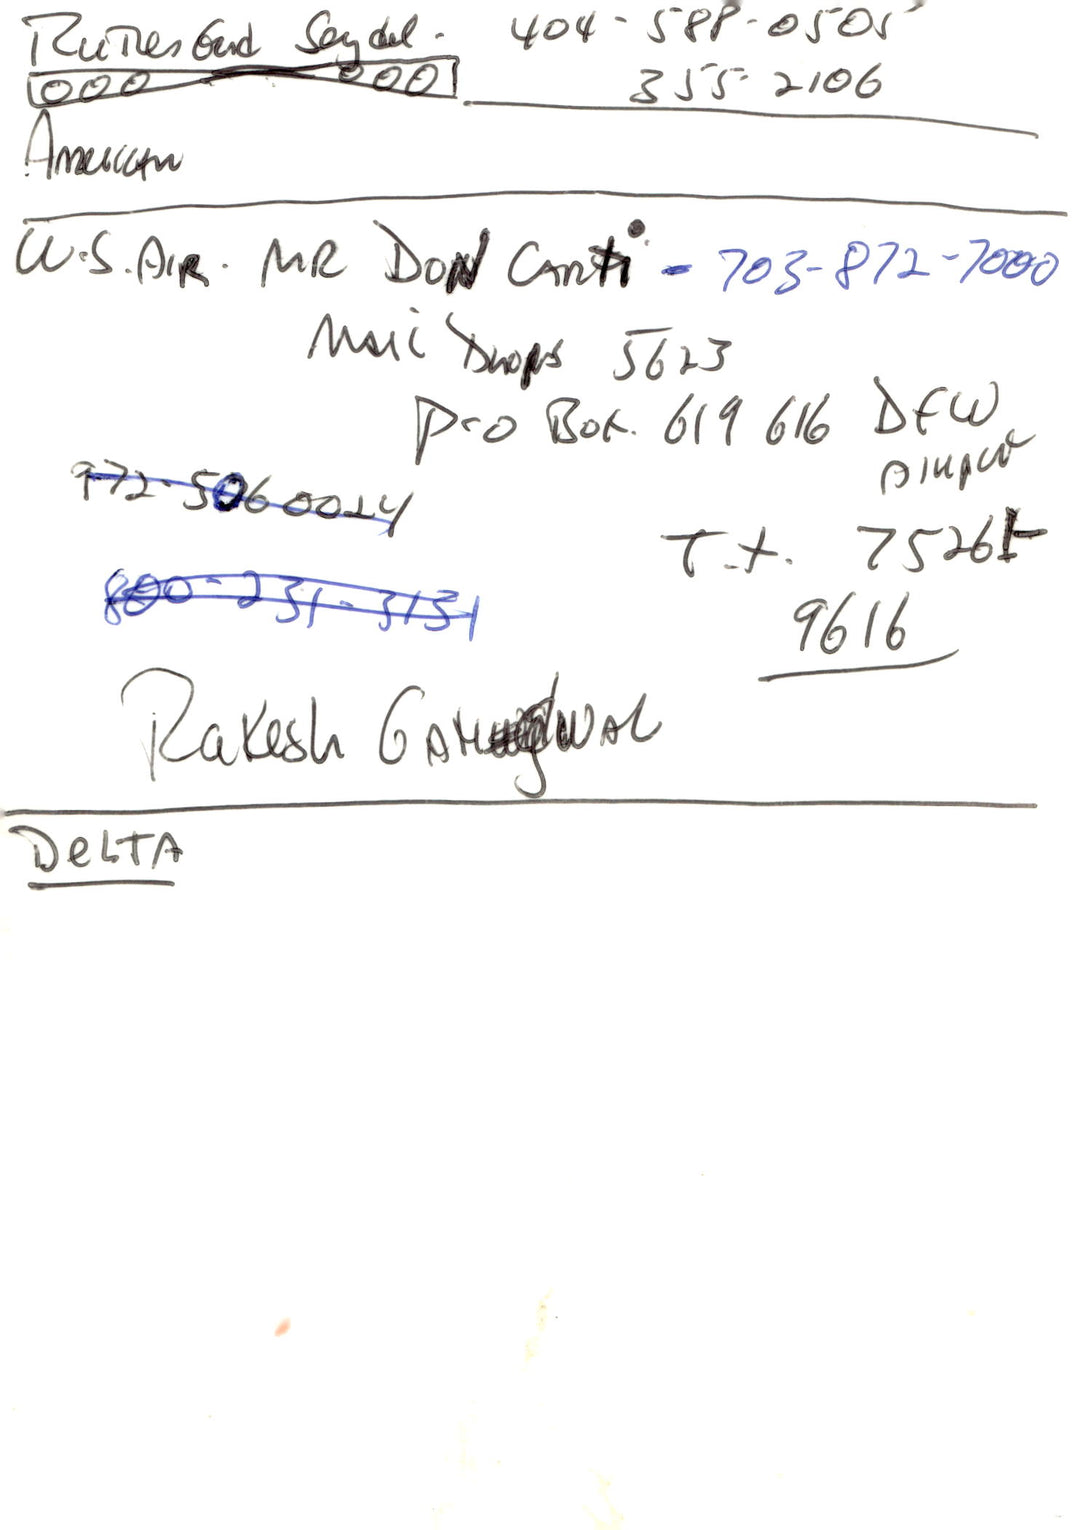 Rutherford Seydel. 404-588-0505
000 000 355-2106
American
U.S. AIR. MR DON Carti - 703-872-7000
Mail Drops 5623
P-O Box. 619 616 DFW
AIRPORT
972-506 0024
T.X. 75261-
800-231-3131
9616
Rakesh GANGWAL
DeLTA